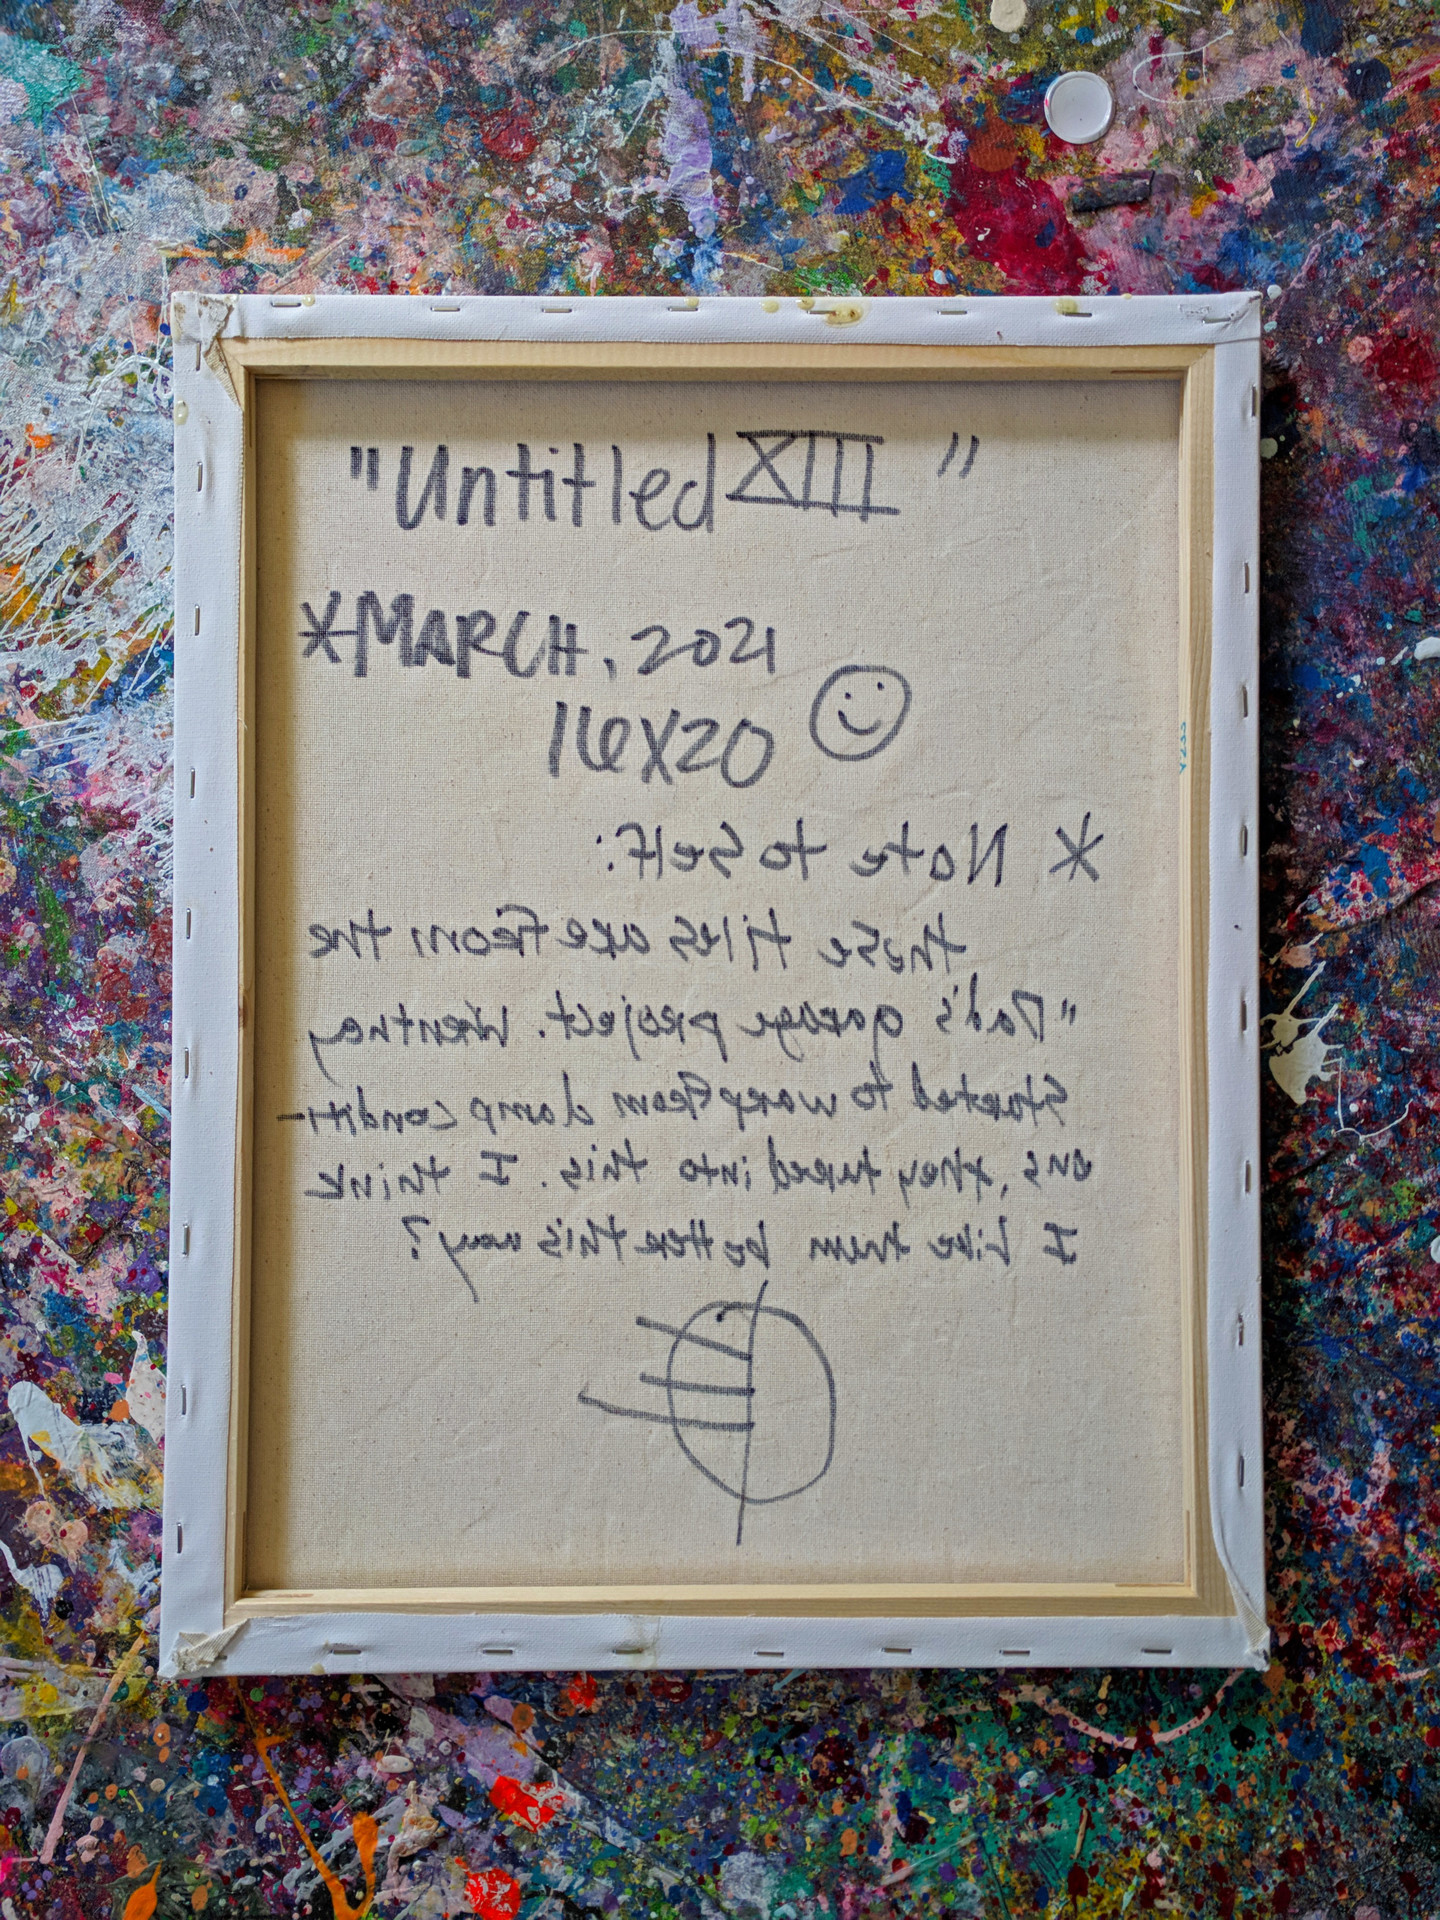 "Untitled XIII"
*MARCH, 2021
16X20
* Note to self:
these tiles are from the
"Dad's garage project. When they
started to warp from damp conditi-
ons, they tured into this. I think
I like them better this way?